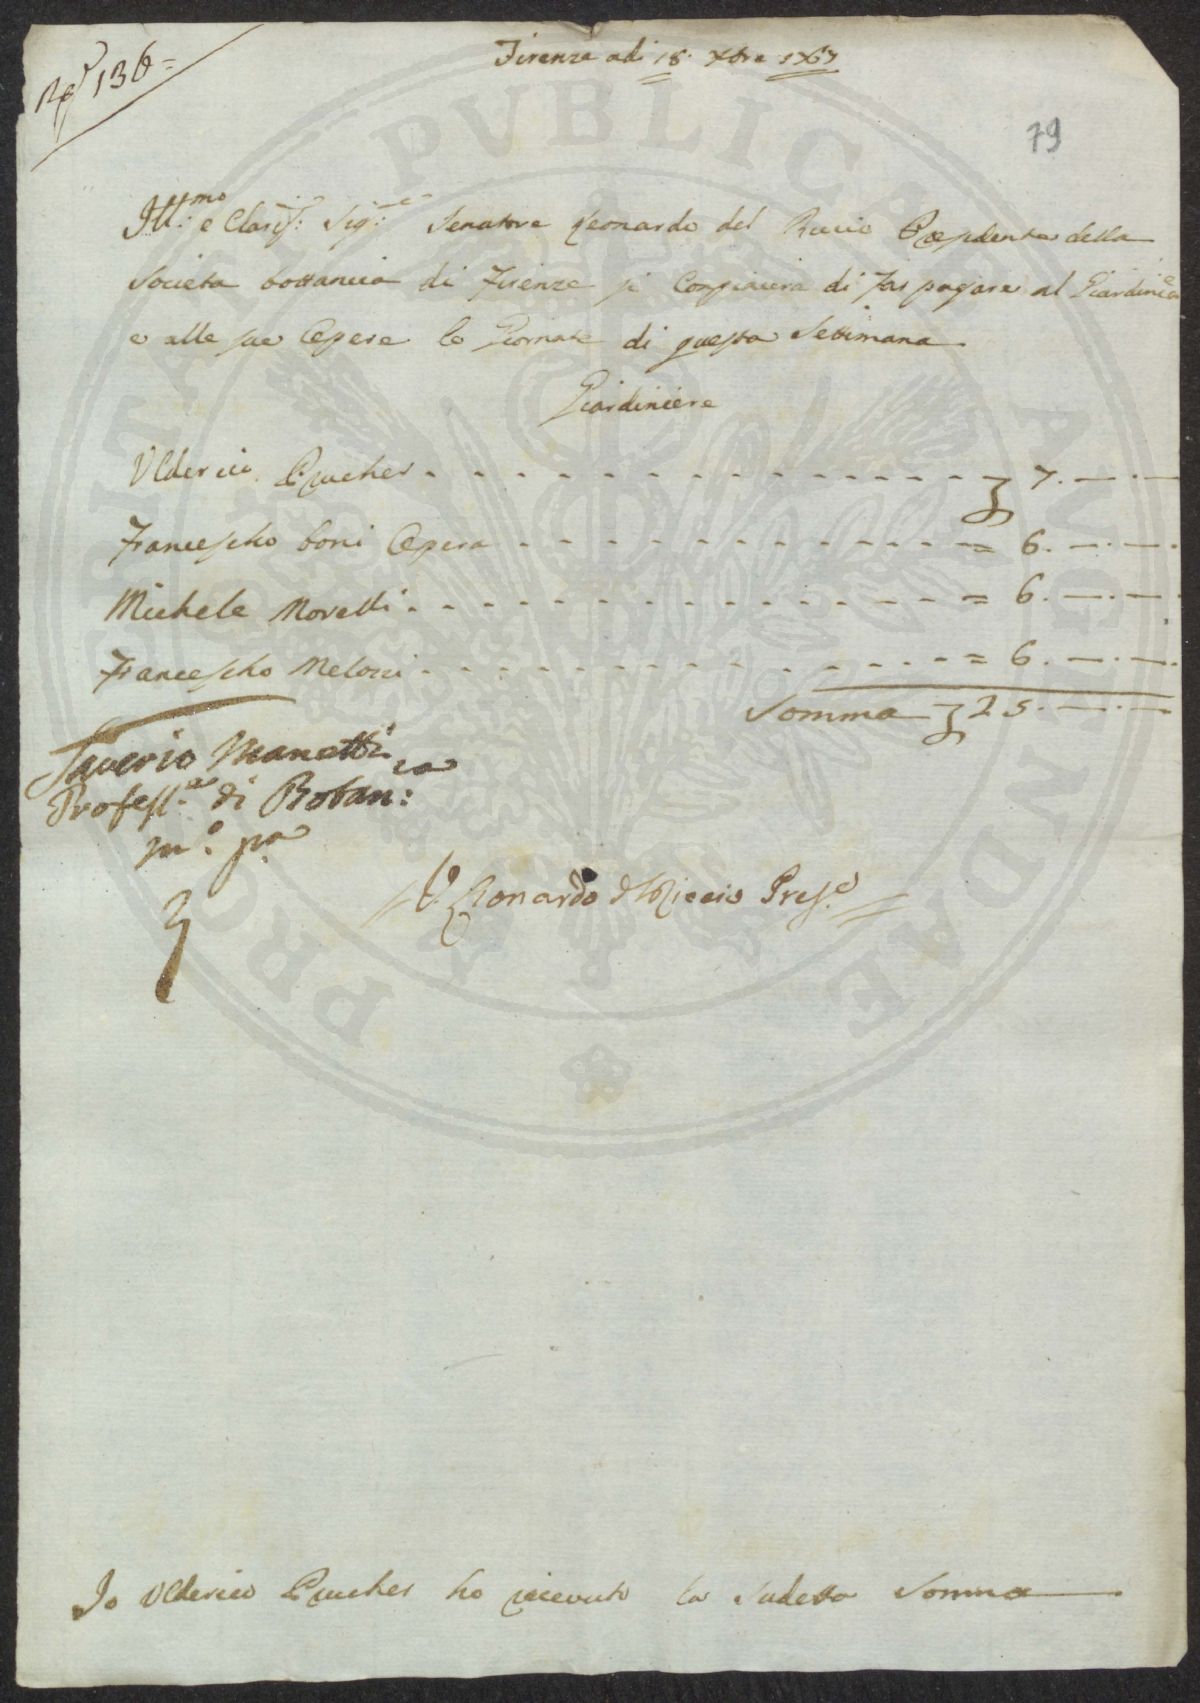 N.º 136=
Firenze adi 18. Xbre 1767
79
Ill:mo e Claris: Sig:re Senatore Leonardo del Riccio Presidente della
Societa bottanica di Firenze si Conpiacera di far pagare al Giardiniere
e alle sue Opere le Giornate di questa Settimana
Giardiniere
Ulderico Prucher - - - - - - - - - - - - - - - 7. — . —
Francescho boni Opera - - - - - - - - - - - - = 6. — . — .
Michele Moretti - - - - - - - - - - - - - - - = 6. — . — .
Francescho Melocci - - - - - - - - - - - - - - = 6. — . — .
Somma 25. — . —
Saverio Manetti
Profess:re di Botan:ca
m:o pa
V. Leonardo d Riccio Pres:e
PRO PUBLICA
Io Ulderico Prucher ho ricevuto la sudetta Somma